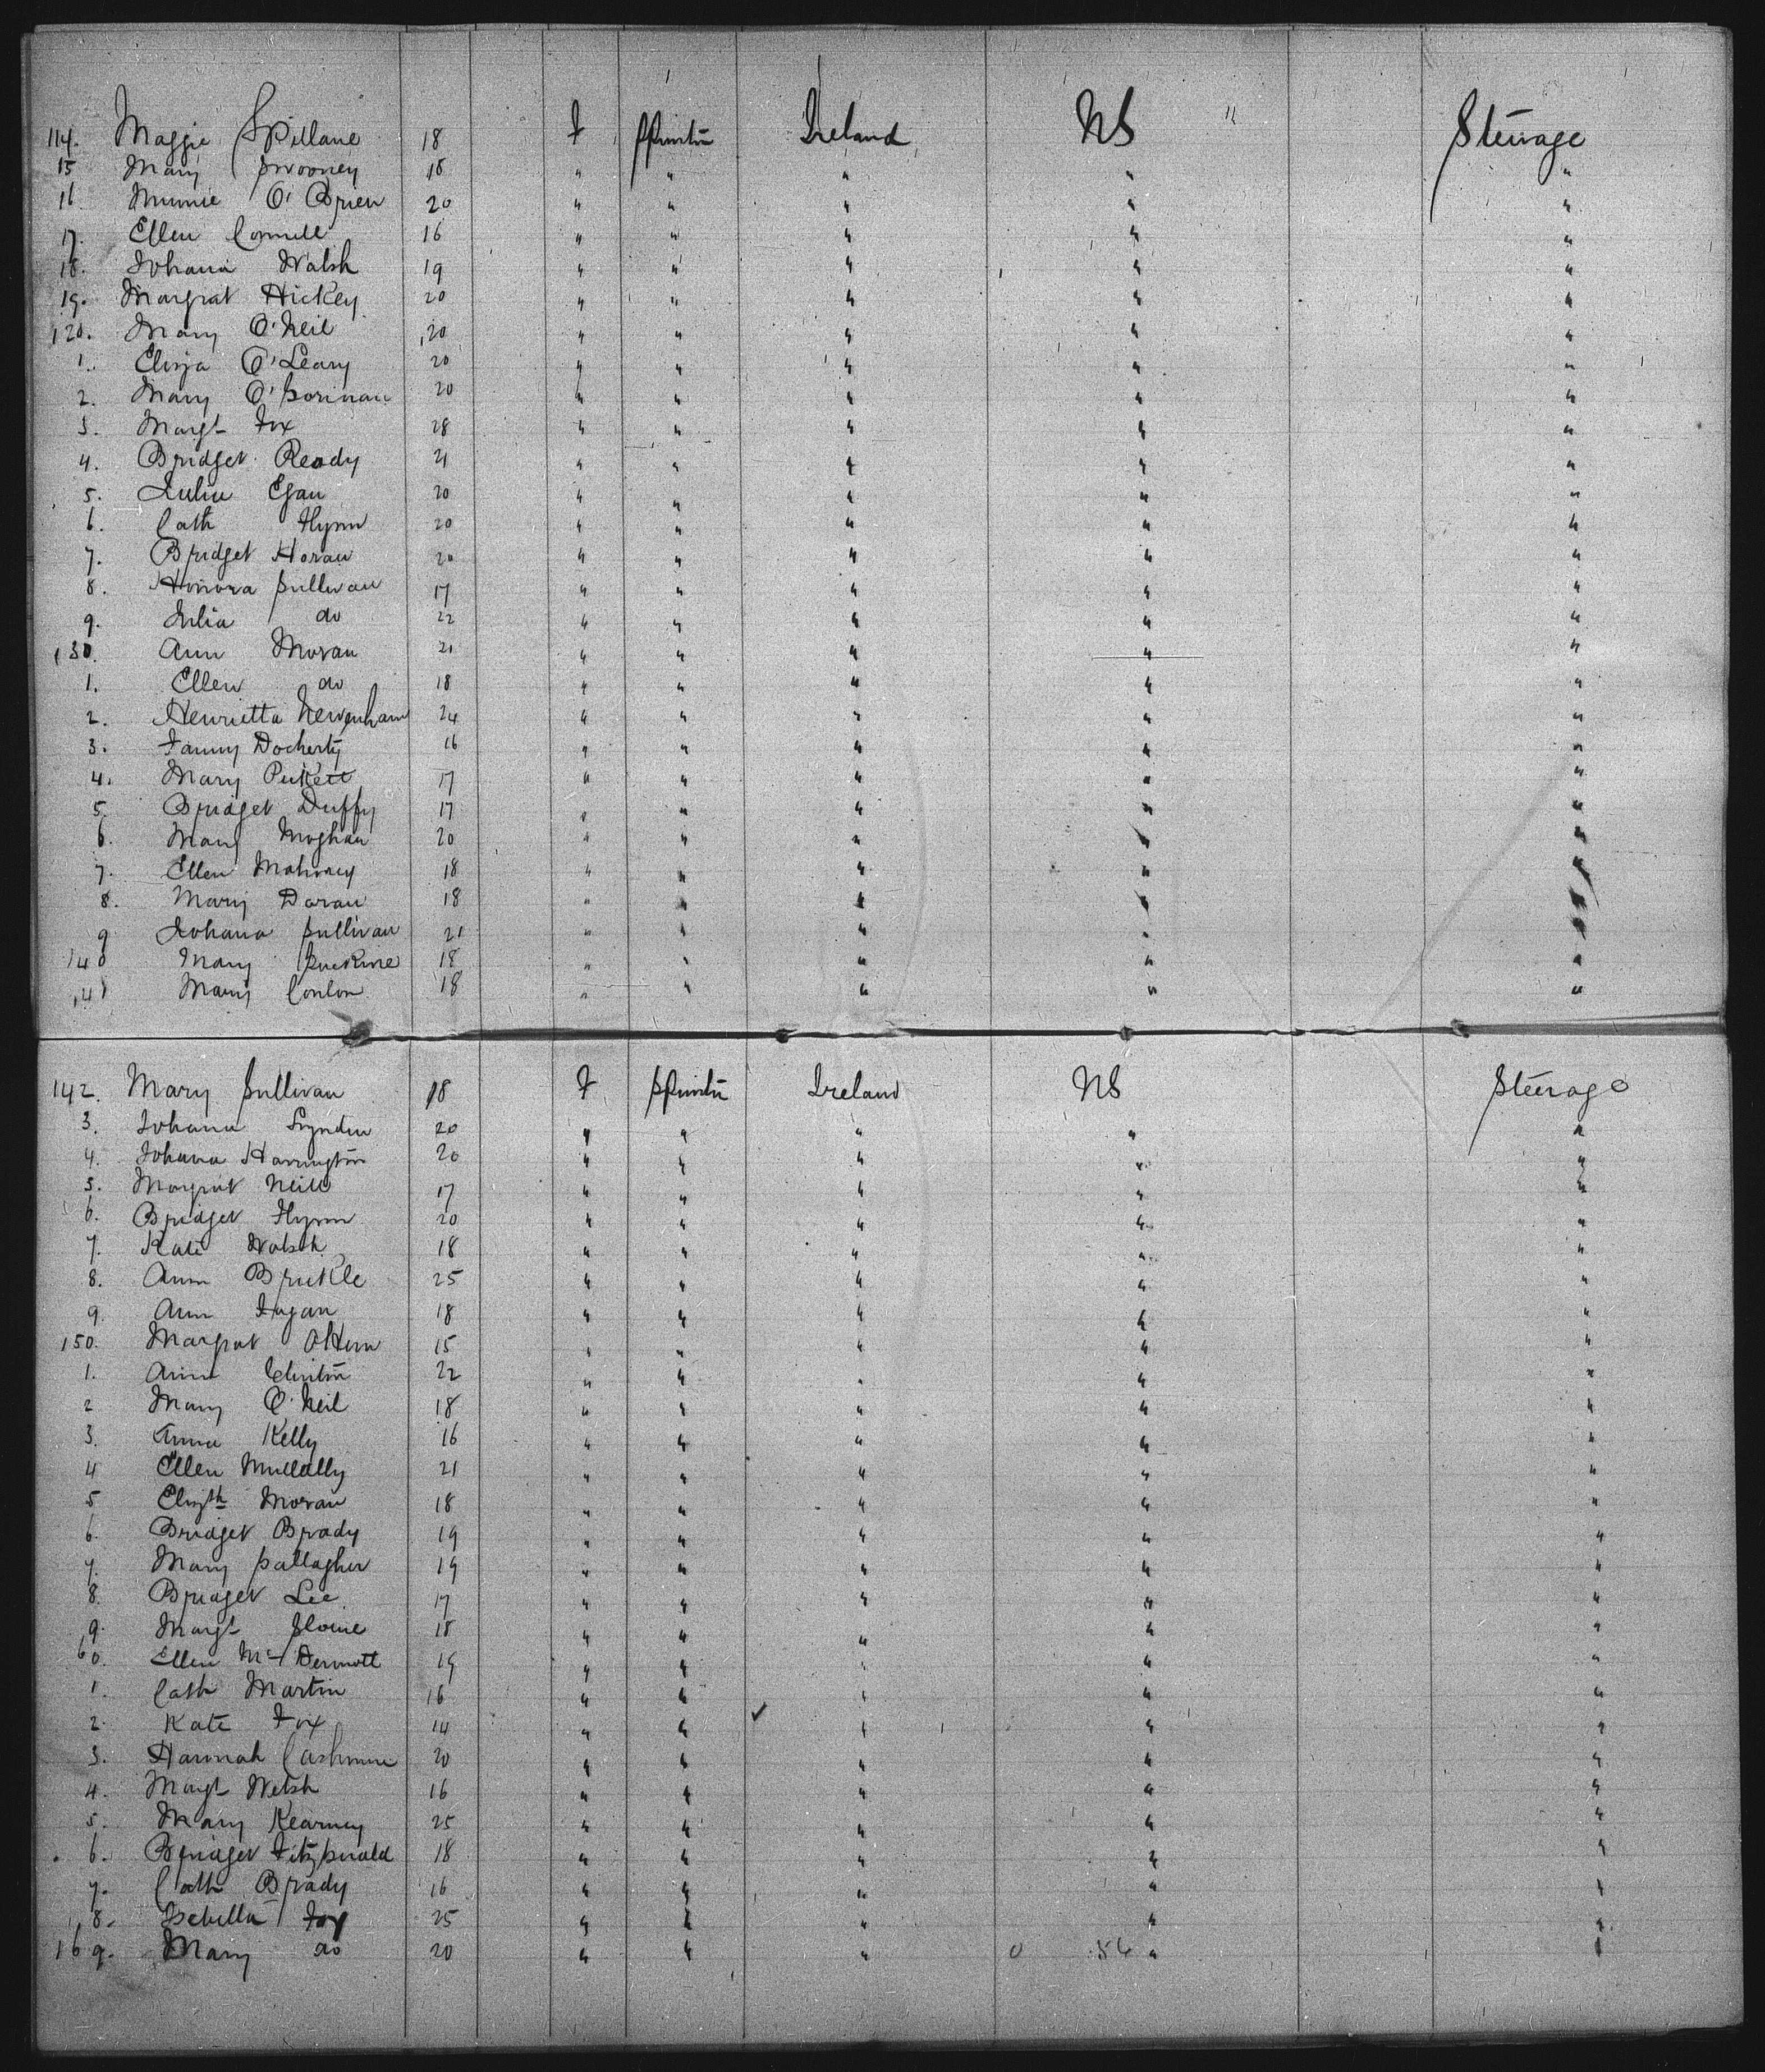 114. Maggie Spillane 18 F Spinster Ireland US Steerage
15 Mary Swooney 18 " " " " "
16. Minnie O'Brien 20 " " " " "
17. Ellen Connell 16 " " " " "
18. Johana Walsh 19 " " " " "
19. Margrat Hickey 20 " " " " "
120. Mary O'Neil 20 " " " " "
1. Eliza O'Leary 20 " " " " "
2. Mary O'Gorman 20 " " " " "
3. Margt Fox 28 " " " " "
4. Bridget Ready 21 " " " " "
5. Julia Egan 20 " " " " "
6. Cath Flynn 20 " " " " "
7. Bridget Horan 20 " " " " "
8. Honora Sullivan 17 " " " " "
9. Julia do 22 " " " " "
130. Ann Moran 21 " " " " "
1. Ellen do 18 " " " " "
2. Henrietta Newenham 24 " " " " "
3. Fanny Docherty 16 " " " " "
4. Mary Pickett 17 " " " " "
5. Bridget Duffy 17 " " " " "
6. Mary Moghan 20 " " " " "
7. Ellen Mahoney 18 " " " " "
8. Mary Doran 18 " " " " "
9 Johana Sullivan 21 " " " " "
140 Mary 18 " " " " "
141 Mary Conlon 18 " " " " "
142. Mary Sullivan 18 F Spinster Ireland US Steerage
3. Johana 20 " " " " "
4. Johana Harrington 20 " " " " "
5. Margrat Neill 17 " " " " "
6. Bridget Flynn 20 " " " " "
7. Kate Walsh 18 " " " " "
8. Ann Brickle 25 " " " " "
9. Ann Fagan 18 " " " " "
150. Margrat OHern 15 " " " " "
1. Ann Clinton 22 " " " " "
2 Mary O'Neil 18 " " " " "
3. Anna Kelly 16 " " " " "
4 Ellen Mullally 21 " " " " "
5 Elizth Moran 18 " " " " "
6. Bridget Brady 19 " " " " "
7. Mary Gallagher 19 " " " " "
8. Bridget Lee 17 " " " " "
9. Margt Slowie 18 " " " " "
60. Ellen McDermott 19 " " " " "
1. Cath Martin 16 " " " " "
2. Kate Fox 14 " " " " "
3. Hannah Cashmire 20 " " " " "
4. Margt Welsh 16 " " " " "
5. Mary Kearney 25 " " " " "
6. Bridget Fitzgerald 18 " " " " "
7. Cath Brady 16 " " " " "
8. Isebella Fox 25 " " " " "
169. Mary do 20 " " " 56 " "